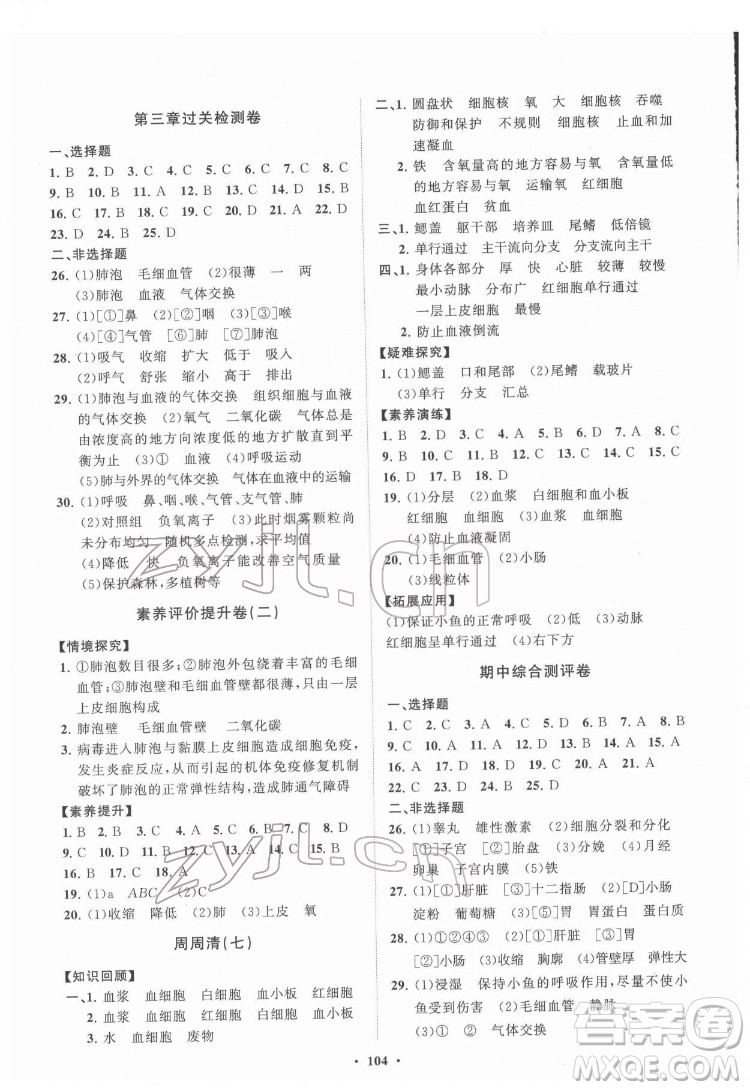 第三章过关检测卷
一、选择题
1. B 2. D 3. C 4. C 5. C 6. D 7. D 8. C
9. B 10. C 11. A 12. B 13. A 14. D 15. D
16. C 17. C 18. C 19. A 20. A 21. B 22. D
23. D 24. D 25. D
二、非选择题
26. (1)肺泡 毛细血管 (2)很薄 一 两
(3)肺泡 血液 气体交换
27. (1)[①]鼻 (2)[②]咽 (3)[③]喉
(4)[④]气管 [⑥]肺 [⑦]肺泡
28. (1)吸气 收缩 扩大 低于 吸入
(2)呼气 舒张 缩小 高于 呼出
29. (1)肺泡与血液的气体交换 组织细胞与血液
的气体交换 (2)氧气 二氧化碳 气体总是
由浓度高的地方向浓度低的地方扩散直到平衡
为止 (3)① 血液 (4)呼吸运动
肺与外界的气体交换 气体在血液中的运输
30. (1)呼吸 鼻、咽、喉、气管、支气管、肺
(2)对照组 负氧离子 (3)此时烟雾颗粒尚
未分布均匀 随机多点检测、求平均值
(4)降低 快 负氧离子能改善空气质量
(5)保护森林、多植树等
素养评价提升卷(二)
【情境探究】
1. ①肺泡数目很多；②肺泡外包绕着丰富的毛细
血管；③肺泡壁和毛细血管壁都很薄，只由一层
上皮细胞构成
2. 肺泡壁 毛细血管壁 二氧化碳
3. 病毒进入肺泡与黏膜上皮细胞造成细胞免疫，
发生炎症反应，引起的机体免疫修复机制可能
破坏了肺泡的正常弹性结构，造成气体通气障碍
【素养提升】
1. B 2. D 3. C 4. B 5. D 6. C 7. A 8. D
9. C 10. D 11. C 12. A 13. B 14. C 15. B
16. A 17. C 18. D
19. (1)a ABC (2)C
20. (1)收缩 降低 (2)肺 (3)上皮 氧
周周清(七)
【知识回顾】
一、1. 血浆 血细胞 白细胞 血小板 红细胞
2. 血浆 白细胞 血小板 红细胞
3. 水 血细胞 废物
二、1. 圆盘状 细胞核 氧 大 细胞核 吞噬
防御和保护 不规则 细胞核 止血和加
速凝血
2. 铁 含氧量高的地方容易与氧 含氧量低
的地方容易与氧 运输氧 红细胞
血红蛋白 贫血
三、1. 鳃盖 躯干部 培养皿 尾鳍 低倍镜
2. 单行通过 主干流向分支 分支流向主干
四、1. 身体各部分 厚 快 心脏 较薄 较慢
最小动脉 分布广 红细胞单行通过
一层上皮细胞 最慢
2. 防止血液倒流
【疑难探究】
1. (1)鳃盖 口和尾部 (2)尾鳍 载玻片
(3)单行 分支 汇总
【素养演练】
1. B 2. D 3. C 4. B 5. A 6. D 7. C 8. B
9. C 10. C 11. D 12. B 13. A 14. B 15. C
16. D 17. A 18. D
19. (1)分层 (2)血浆 白细胞和血小板
红细胞 (3)血浆 白细胞和血小板
(4)防止血液凝固
20. (1)毛细血管 (2)小肠
(3)线粒体
【拓展应用】
(1)保证小鱼的正常呼吸 (2)低 (3)动脉
红细胞呈单行通过 (4)① ②
期中综合测评卷
一、选择题
1. C 2. C 3. A 4. A 5. C 6. D 7. C 8. C
9. C 10. A 11. C 12. D 13. D 14. D 15. C
16. D 17. C 18. A 19. A 20. A 21. C 22. C
23. D 24. C 25. A
二、非选择题
26. (1)睾丸 雄性激素 (2)细胞分裂和分化
(3)[①]子宫 [②]胎盘 (4)分娩 (4)月经
卵巢 子宫内膜 (5)铁
27. (1)[①]肝脏 [③]十二指肠 (2)[D]小肠
淀粉 葡萄糖 (3)[⑤]胃
28. (1)①②④③ (2)[①]肝脏 [⑤]胃
[②]小肠 (3)收缩 胸廓 (4)管壁厚 弹性大
29. (1)浸湿 维持小鱼的呼吸作用，尽可能减少小
鱼受到伤害 (2)毛细血管 静脉
(3)① ② 气体交换
104
zyjl.cn
zyjl.cn
答案卷
MXQE.COM